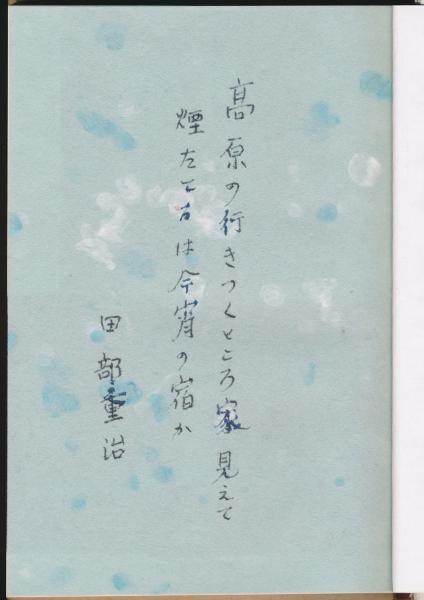 高原の行きつくところ家見えて
煙たてるは今宵の宿か
田部重治